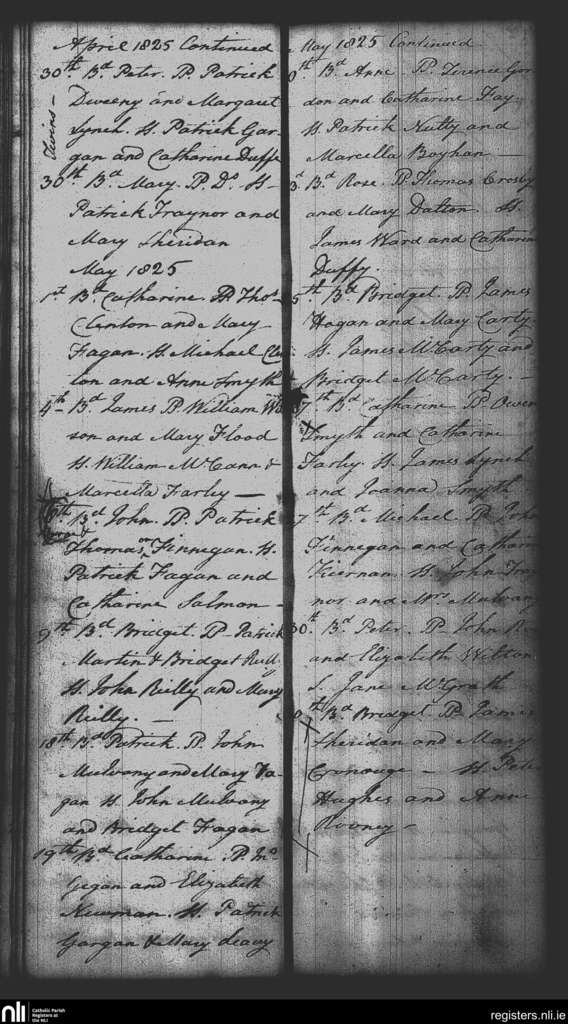 April 1825 Continued
30th Bd Peter. PP Patrick
Twins
Dweeny and Margaret
Lynch. H. Patrick Gar-
gan and Catharine Duffe
30th Bd Mary. P. Do. H-
Patrick Traynor and
Mary Sheridan
May 1825
1st Bd Catharine. PP Thos
Clinton and Mary
Fagan. H. Michael
and Anne Smyth
4th Bd James PP William
son and Mary Flood
H. William McCann &
Marcella Farley —
Bd John. PP. Patrick
Thomas or Finnegan. H.
Patrick Fagan and
Catharine Salmon -
9th Bd Bridget. P- Patrick
Martin & Bridget
H. John Reilly and Mary
Reilly. —
18th Bd Patrick. P. John
Mulvany and Mary Fa-
gan H. John Mulvany
and Bridget Fagan
19th Bd Catharine. P. Jno
Gegan and Elizabeth
Newman. H. Patrick
Gargan & Mary Leavy
May 1825 Continued
Bd Anne PP. Terence Gor-
don and Catharine Fay
H. Patrick Nutty and
Marcella Boyhan —
Bd Rose. PP Thomas Crosby
and Mary Dalton H.
James Ward and Catharine
Duffy.
5th Bd Bridget. P. James
Hagan and Mary Carty
H. James McCarty and
Bridget McCarty. —
7th Bd Catharine PP Owen
Smyth and Catharine
Farley. H. James Lynch
and Joanna Smyth
7th Bd Michael. PP. John
Finnegan and
Kiernan. H. John Tray
nor. and Mrs Mulvany
30th Bd Peter. P- John
and Elizabeth Wilton
S. Jane McGrath
th Bd Bridget. PP. James
Sheridan and Mary
H. Peter
Hughes and Anne
Rooney —
nli
Catholic Parish
Registers at
the NLI
registers.nli.ie